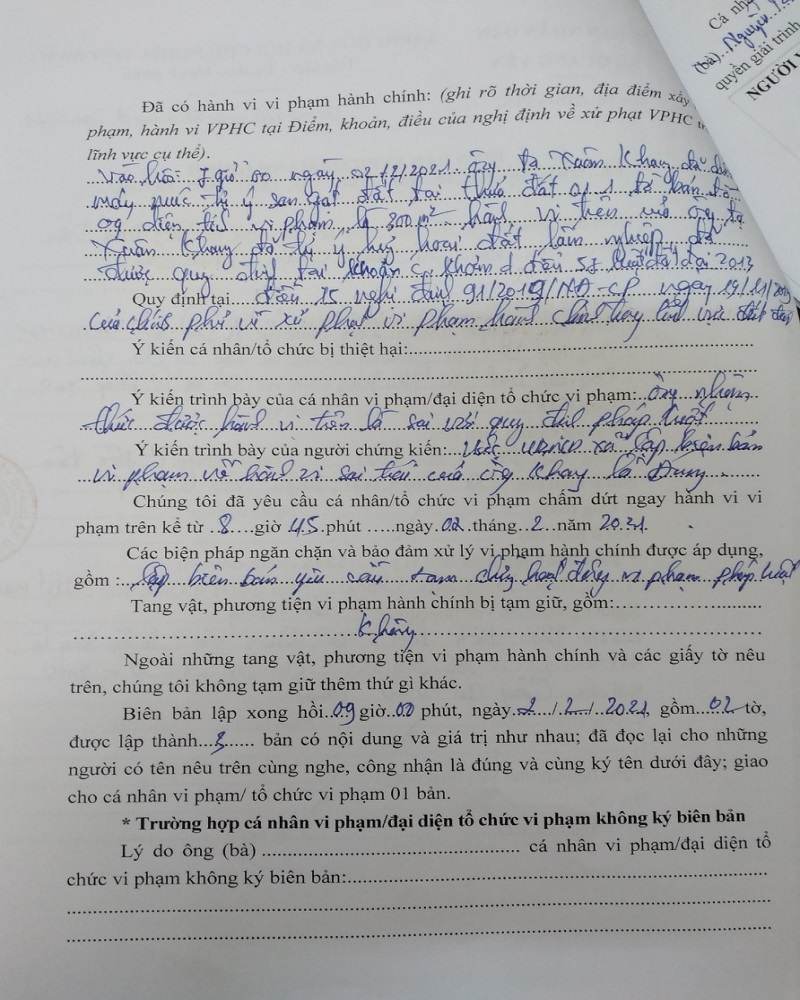 Cá nh
(bà)...Nguyễn
quyền giải trình
NGƯỜI V
Đã có hành vi vi phạm hành chính: (ghi rõ thời gian, địa điểm xảy
phạm, hành vi VPHC tại Điểm, khoản, điều của nghị định về xử phạt VPHC tr
lĩnh vực cụ thể).
Vào hồi: 7 giờ 00 ngày 02/2/2021 ông Tạ Xuân Khay đã
máy múc tự ý san gạt đất tại thửa đất số 1 tờ bản
09 diện tích vi phạm là 300 m² hành vi trên của ông Tạ
Xuân Khay đã tự ý huỷ hoại đất lâm nghiệp đã
được quy định tại khoản
Quy định tại điều 15 nghị định 91/2019/NĐ-CP ngày 19/11/2019
của chính phủ về xử phạt vi phạm hành chính trong lĩnh vực đất đai
Ý kiến cá nhân/tổ chức bị thiệt hại:
Ý kiến trình bày của cá nhân vi phạm/đại diện tổ chức vi phạm: Ông nhận
thức được hành vi trên là sai với quy định pháp luật
Ý kiến trình bày của người chứng kiến: Việc UBND xã lập biên bản
vi phạm về hành vi sai trái của ông Khay là đúng
Chúng tôi đã yêu cầu cá nhân/tổ chức vi phạm chấm dứt ngay hành vi vi
phạm trên kể từ 8 giờ 45 phút .....ngày 02 tháng 2 năm 2021.
Các biện pháp ngăn chặn và bảo đảm xử lý vi phạm hành chính được áp dụng,
gồm : lập biên bản yêu cầu tạm dừng hoạt động vi phạm pháp luật
Tang vật, phương tiện vi phạm hành chính bị tạm giữ, gồm:
Không
Ngoài những tang vật, phương tiện vi phạm hành chính và các giấy tờ nêu
trên, chúng tôi không tạm giữ thêm thứ gì khác.
Biên bản lập xong hồi 09 giờ 00 phút, ngày 2 / 2 / 2021, gồm 02 tờ,
được lập thành 3 bản có nội dung và giá trị như nhau; đã đọc lại cho những
người có tên nêu trên cùng nghe, công nhận là đúng và cùng ký tên dưới đây; giao
cho cá nhân vi phạm/ tổ chức vi phạm 01 bản.
* Trường hợp cá nhân vi phạm/đại diện tổ chức vi phạm không ký biên bản
Lý do ông (bà) ............................................ cá nhân vi phạm/đại diện tổ
chức vi phạm không ký biên bản: